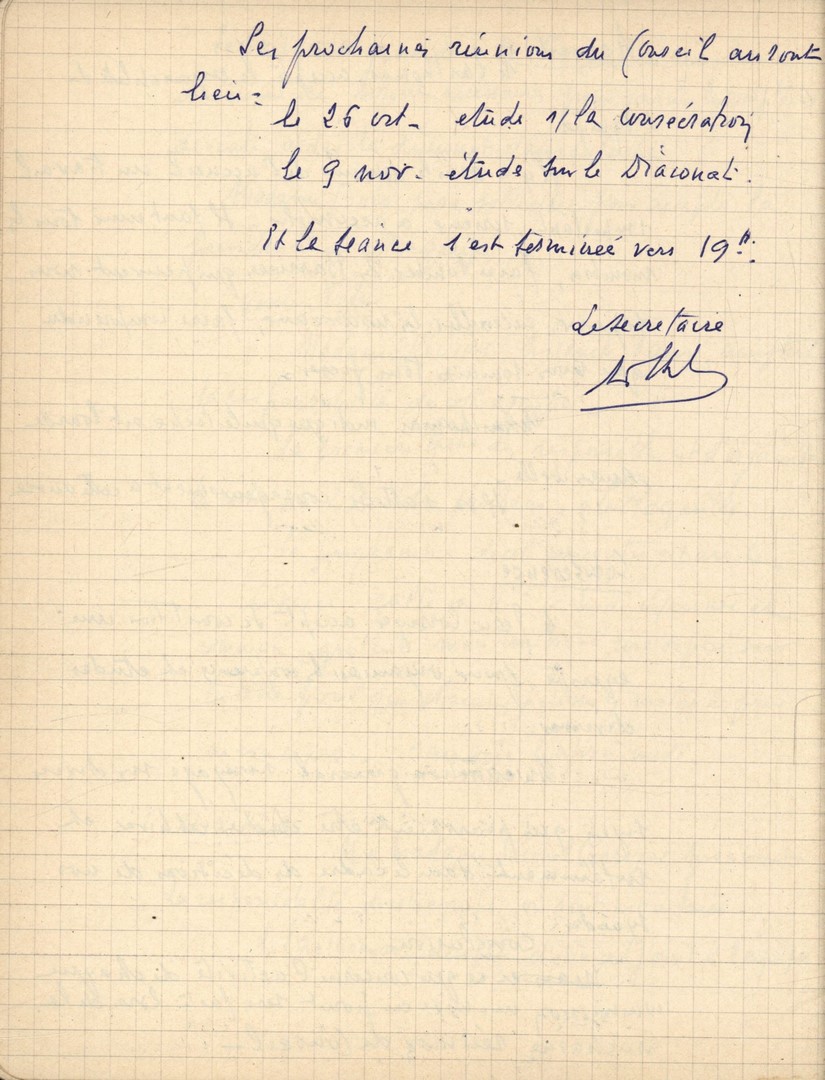 Les prochaines réunions du Conseil auront
lieu =
le 26 oct- etude s/ la consécration
le 9 nov- étude sur le Diaconat.
Et la séance s'est terminée vers 19h.
Le secretaire